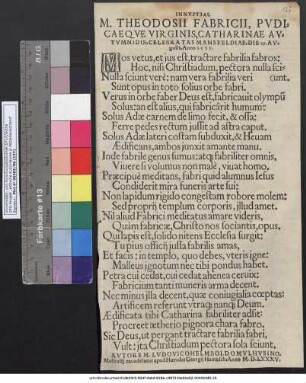 IN NVPTIAS
M. THEODOSII FABRICII, PVDI-
CAEQVE VIRGINIS, CATHARINAE AV-
TVMNI DIS, CELEBRATAS MANSFELDIAE, DIE
Anno
MOs vetus, et ius est, tractare fabrilia fabros:
Hoc, nisi Christiadum, pectora nulla sci-
Nulla sciunt verè: nam vera fabrilia veri (unt,
Sunt opus in toto solius orbe fabri.
Verus in orbe faber Deus est, fabricauit olympũ
Solus: an est alius, qui fabricârit humum?
Solus Adæ carnem de limo fecit, & ossa:
Ferre pedes rectum iussit ad astra caput.
Solus Adæ lateri costam subduxit, & Heuam
Ædificans, ambos junxit amante manu.
Inde fabrile genus fumus: atq; fabriliter omnis,
Viuere si volumus non malè, viuat homo,
Præcipuè meditans, fabri quid alumnus Iesus
Condiderit mira funeris arte sui:
Non lapidum rigido congestam robore molem:
Sed proprij templum corporis, illud amet.
Nil aliud Fabrici meditatus amare videris,
Quum fabricæ, Christo nos sociantis, opus,
Qualis pa est, solido nitens Ecclesia surgit:
Tu pius officij iussa fabrilis amas,
Et facis: in templo, quo debes, vteris igne:
Malleus ignotum nec tibi pondus habet.
Petra tui cedat, cui credat ahenea ceruix:
Fabricium tanti muneris arma decent.
Nec minus illa decent, quæ coniugialia cœptas:
Artificem referunt vtraq; nanq; Deum.
Ædificata tibi Catharina fabriliter adsit:
Procreet æthereo pignora chara fabro.
Sic Deus, ut pergant tractare fabrilia fabri,
Vult: ita Christiadûm pectora sola sciunt,
AVTORE M. LVDOVICO HELMBOLDO MVLHVSINO.
Georgij Anno M. D. LXXXV.